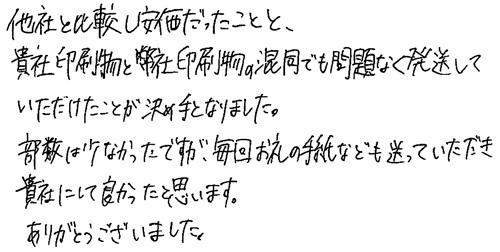 他社と比較し安価だったことと、
貴社印刷物と弊社印刷物の混同でも問題なく発送して
いただけたことが決め手となりました。
部数は少なかったですが、毎回お礼の手紙なども送っていただき
貴社にして良かったと思います。
ありがとうございました。